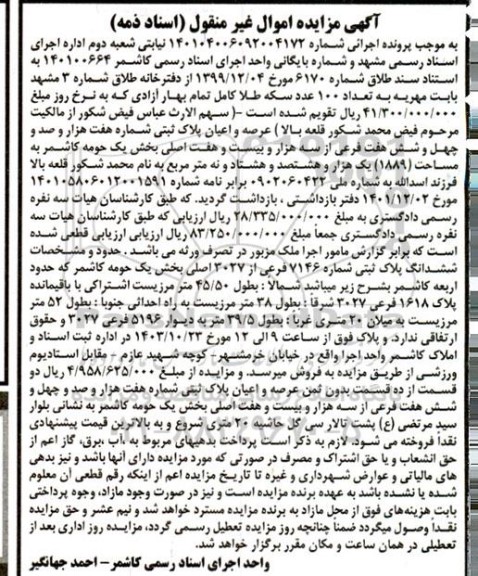 آگهی مزایده اموال غیر منقول (اسناد ذمه)
به موجب پرونده اجرائی شماره ۱۴۰۱۰۴۰۰۶۰۹۲۰۰۴۱۷۲ نیابتی شعبه دوم اداره اجرای
اسناد رسمی مشهد و شماره بایگانی واحد اجرای اسناد رسمی کاشمر ۱۴۰۱۰۰۶۶۴ به
استناد سند طلاق شماره ۶۱۷۰ مورخ ۱۳۹۹/۱۲/۰۴ از دفترخانه طلاق شماره ۳ مشهد
بابت مهریه به تعداد ۱۰۰ عدد سکه طلا کامل تمام بهار آزادی که به نرخ روز مبلغ
۴۱/۳۰۰/۰۰۰/۰۰۰ ریال تقویم شده است -( سهم الارث عباس فیض شکور از مالکیت
مرحوم فیض محمد شکور قلعه بالا ) عرصه و اعیان پلاک ثبتی شماره هفت هزار و صد و
چهل و شش هفت فرعی از سه هزار و بیست و هفت اصلی بخش یک حومه کاشمر به
مساحت (۱۸۸۹) یک هزار و هشتصد و هشتاد و نه متر مربع به نام محمد شکور قلعه بالا
فرزند اسدالله به شماره ملی ۰۹۰۲۰۶۰۴۲۲ برابر نامه شماره ۱۴۰۱۰۵۸۰۶۰۱۲۰۰۱۵۹۱
مورخ ۱۴۰۱/۱۲/۰۲ دفتر بازداشتی ، بازداشت گردید. که طبق کارشناسان هیات سه نفره
رسمی دادگستری به مبلغ ۲۸/۳۳۵/۰۰۰/۰۰۰ ریال ارزیابی که طبق کارشناسان هیات سه
نفره رسمی دادگستری جمعا مبلغ ۸۳/۲۵۰/۰۰۰/۰۰۰ ریال ارزیابی ارزیابی قطعی شده
است که برابر گزارش مامور اجرا ملک مزبور در تصرف ورثه می باشد . حدود و مشخصات
ششدانگ پلاک ثبتی شماره ۷۱۴۶ فرعی از ۳۰۲۷ اصلی بخش یک حومه کاشمر که حدود
اربعه کاشمر بشرح زیر میباشد شمالا : بطول ۴۵/۵۰ متر مرزیست اشتراکی با باقیمانده
پلاک ۱۶۱۸ فرعی ۳۰۲۷ شرقا : بطول ۳۸ متر مرزیست به راه احداثی جنوبا : بطول ۵۲ متر
مرزیست به میلان ۳۰ متری غربا : بطول ۳۹/۵ متر به دیوار ۵۱۹۶ فرعی ۳۰۲۷ و حقوق
ارتفاقی ندارد. و پلاک فوق از ساعت ۹ الی ۱۲ مورخ ۱۴۰۳/۱۰/۲۳ در اداره ثبت اسناد و
املاک کاشمر واحد اجرا واقع در خیابان خرمشهر- کوچه شهید عازم - مقابل استادیوم
ورزشی از طریق مزایده به فروش میرسد. و مزایده از مبلغ ۴/۹۵۸/۶۲۵/۰۰۰ ریال دو
قسمت از ده قسمت بدون ثمن عرصه و اعیان پلاک ثبتی شماره هفت هزار و صد و چهل و
شش هفت فرعی از سه هزار و بیست و هفت اصلی بخش یک حومه کاشمر به نشانی بلوار
سید مرتضی (ع) پشت تالار سی گل حاشیه ۳۰ متری شروع و به بالاترین قیمت پیشنهادی
نقدا فروخته می شود. لازم به ذکر است پرداخت بدهیهای مربوط به آب، برق، گاز اعم از
حق انشعاب و یا حق اشتراک و مصرف در صورتی که مورد مزایده دارای آنها باشد و نیز بدهی
های مالیاتی و عوارض شهرداری و غیره تا تاریخ مزایده اعم از اینکه رقم قطعی آن معلوم
شده یا نشده باشد به عهده برنده مزایده است و نیز در صورت وجود مازاد، وجوه پرداختی
بابت هزینه‌های فوق از محل مازاد به برنده مزایده مسترد خواهد شد و نیم عشر و حق مزایده
نقدا وصول میگردد ضمنا چنانچه روز مزایده تعطیل رسمی گردد، مزایده روز اداری بعد از
تعطیلی در همان ساعت و مکان مقرر برگزار خواهد شد.
واحد اجرای اسناد رسمی کاشمر – احمد جهانگیر